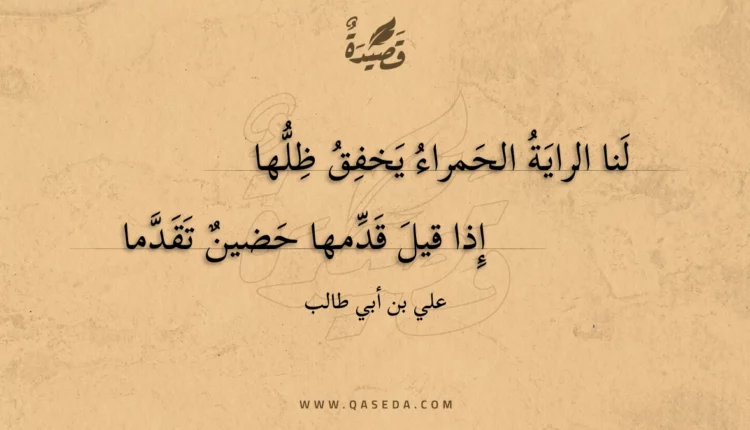 قَصِيدَةٌ
لَنا الرايَةُ الحَمراءُ يَخفِقُ ظِلُّها
إِذا قيلَ قَدِّمها حَضينٌ تَقَدَّما
علي بن أبي طالب
WWW.QASEDA.COM